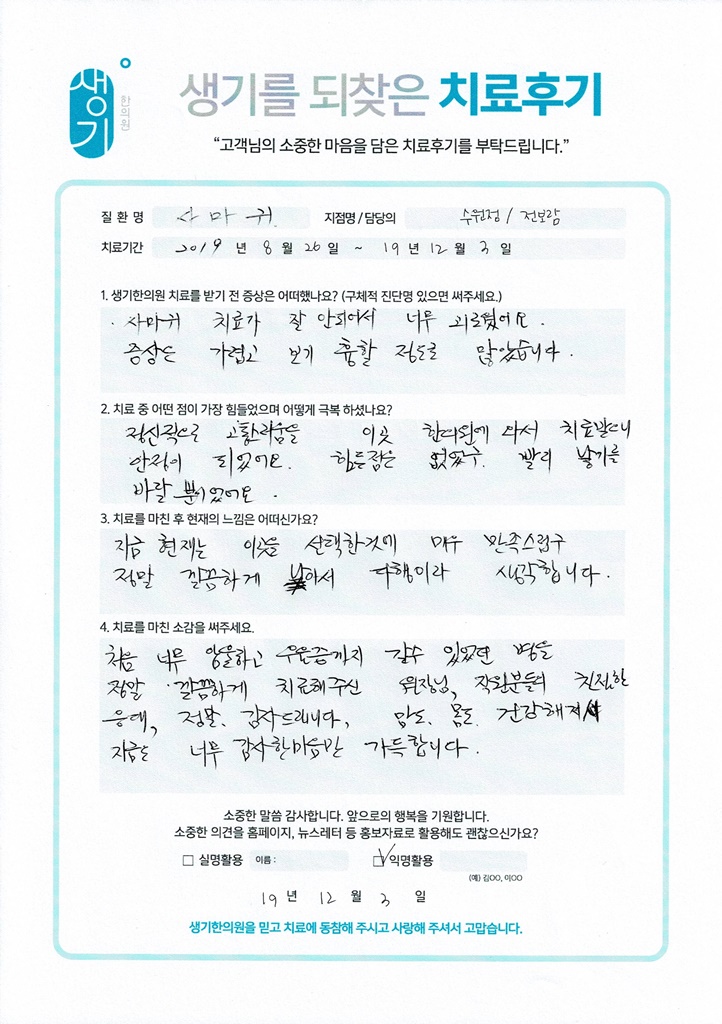 생기
한의원
생기를 되찾은 치료후기
“고객님의 소중한 마음을 담은 치료후기를 부탁드립니다.”
질 환 명 사마귀 지점명 / 담당의 수원점 / 전보람
치료기간 2019 년 8 월 26 일 ~ 19 년 12 월 3 일
1. 생기한의원 치료를 받기 전 증상은 어떠했나요? (구체적 진단명 있으면 써주세요.)
사마귀 치료가 잘 안되어서 너무 괴로웠어요.
증상은 가렵고 보기 흉할 정도로 많았습니다.
2. 치료 중 어떤 점이 가장 힘들었으며 어떻게 극복 하셨나요?
정신적으로 고통스러움을 이곳 한의원에 와서 치료받으니
안정이 되었어요. 힘든점은 없었구. 빨리 낳기를
바랄 뿐이었어요.
3. 치료를 마친 후 현재의 느낌은 어떠신가요?
지금 현재는 이곳을 선택한것에 매우 만족스럽구
정말 깔끔하게 낳아서 다행이라 생각합니다.
4. 치료를 마친 소감을 써주세요.
처음 너무 암울하고 우울증까지 갈수 있었던 병을
정말 깔끔하게 치료해주신 원장님, 직원분들의 친절한
응대, 정말, 감사드립니다, 맘도, 몸도 건강해져서
지금은 너무 감사한마음만 가득합니다.
소중한 말씀 감사합니다. 앞으로의 행복을 기원합니다.
소중한 의견을 홈페이지, 뉴스레터 등 홍보자료로 활용해도 괜찮으신가요?
□ 실명활용 이름 : ☑ 익명활용
(예) 김OO, 이OO
19 년 12 월 3 일
생기한의원을 믿고 치료에 동참해 주시고 사랑해 주셔서 고맙습니다.